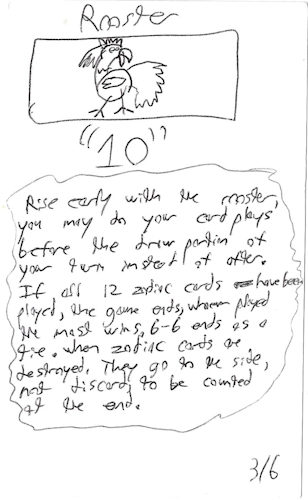 Rooster
"10"
Rise early with the rooster,
you may do your card plays
before the draw portion of
your turn instead of after.
If all 12 zodiac cards have been
played, the game ends, whoever played
the most wins, 6-6 ends as a
tie. when zodiac cards are
destroyed. They go to the side,
not discard, to be counted
at the end.
3/6